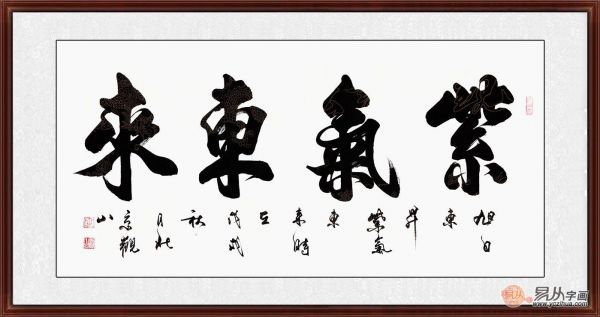 紫氣東來
旭日
東
昇
紫氣
東
來時
戊戌
秋
月於
京觀
山
易从字画
www.yczihua.com